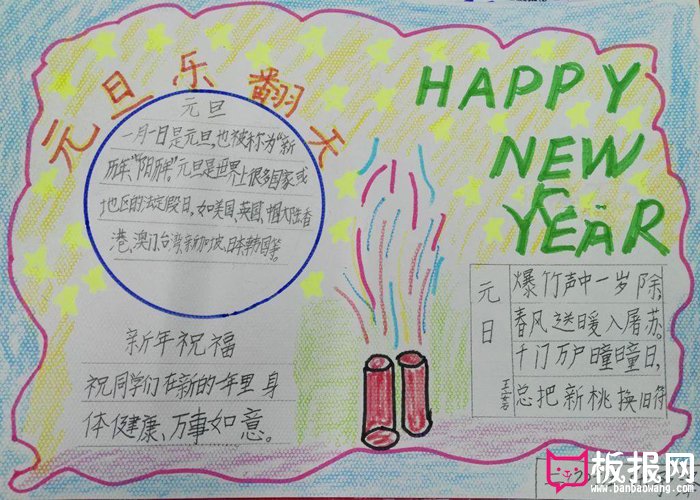 元旦乐翻天
HAPPY
NEW
YEAR
元旦
一月一日是元旦,也被称为“新
历年”“阳历年”。元旦是世界上很多国家或
地区的法定假日,如美国、英国、中国大陆香
港、澳门、台湾、新加坡、日本、韩国等。
新年祝福
祝同学们在新的一年里身
体健康、万事如意。
元日
王安石
爆竹声中一岁除,
春风送暖入屠苏。
千门万户曈曈日,
总把新桃换旧符
板报网
www.banbaowang.com